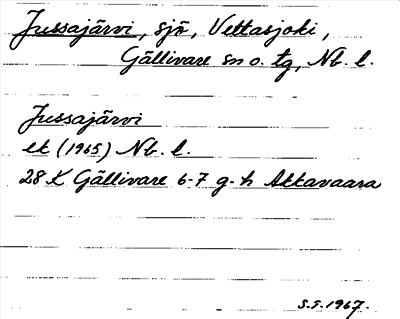 Jussajärvi, sjö, Vettasjoki,
Gällivare sn o. tg, Nb. l.
Jussajärvi
ek (1965) Nb. l.
28 K Gällivare 6-7 g-h Akkavaara
S.S. 1967.